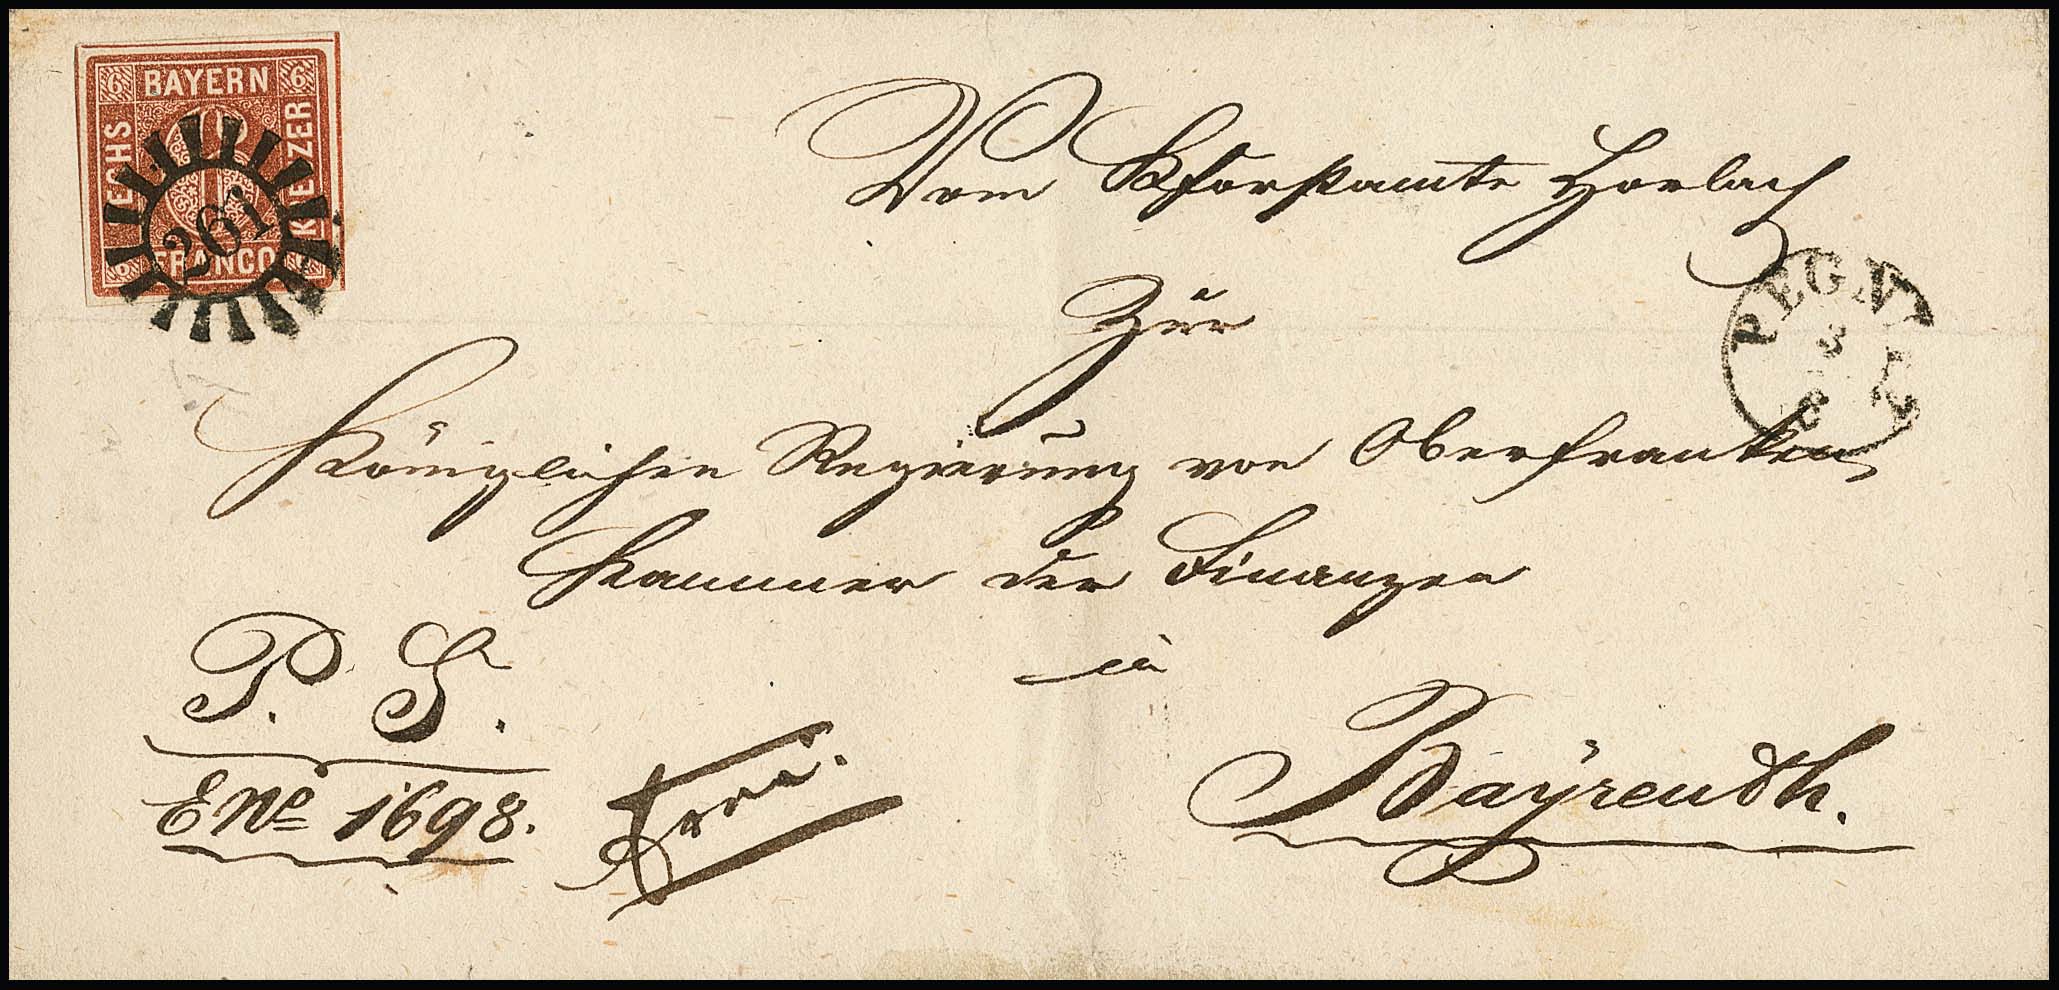 6 BAYERN 6
SECHS
KREUZER
6 FRANCO 6
261
Vom K Forstamte Horlach
PEGNITZ
Zur
Königlichen Regierung von Oberfranken
Kammer der Finanzen
P. S.
in
E No 1698.
frei.
Bayreuth.